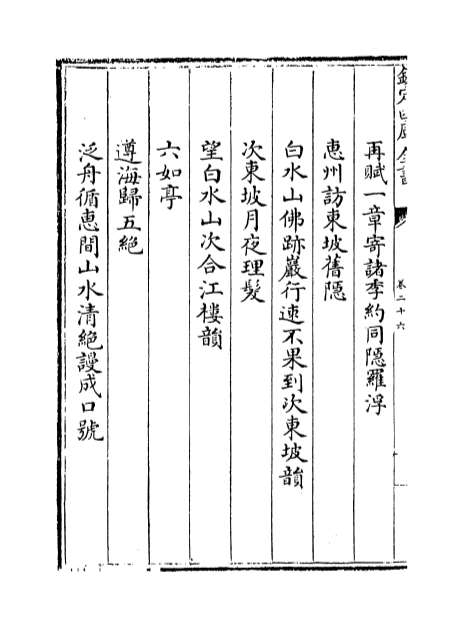 欽定四庫全書
卷二十六
再賦一章寄諸李約同隠羅浮
惠州訪東坡舊隠
白水山佛跡巖行速不果到次東坡韻
次東坡月夜理髮
望白水山次合江樓韻
六如亭
遵海歸五絶
泛舟循惠間山水清絶謾成口號